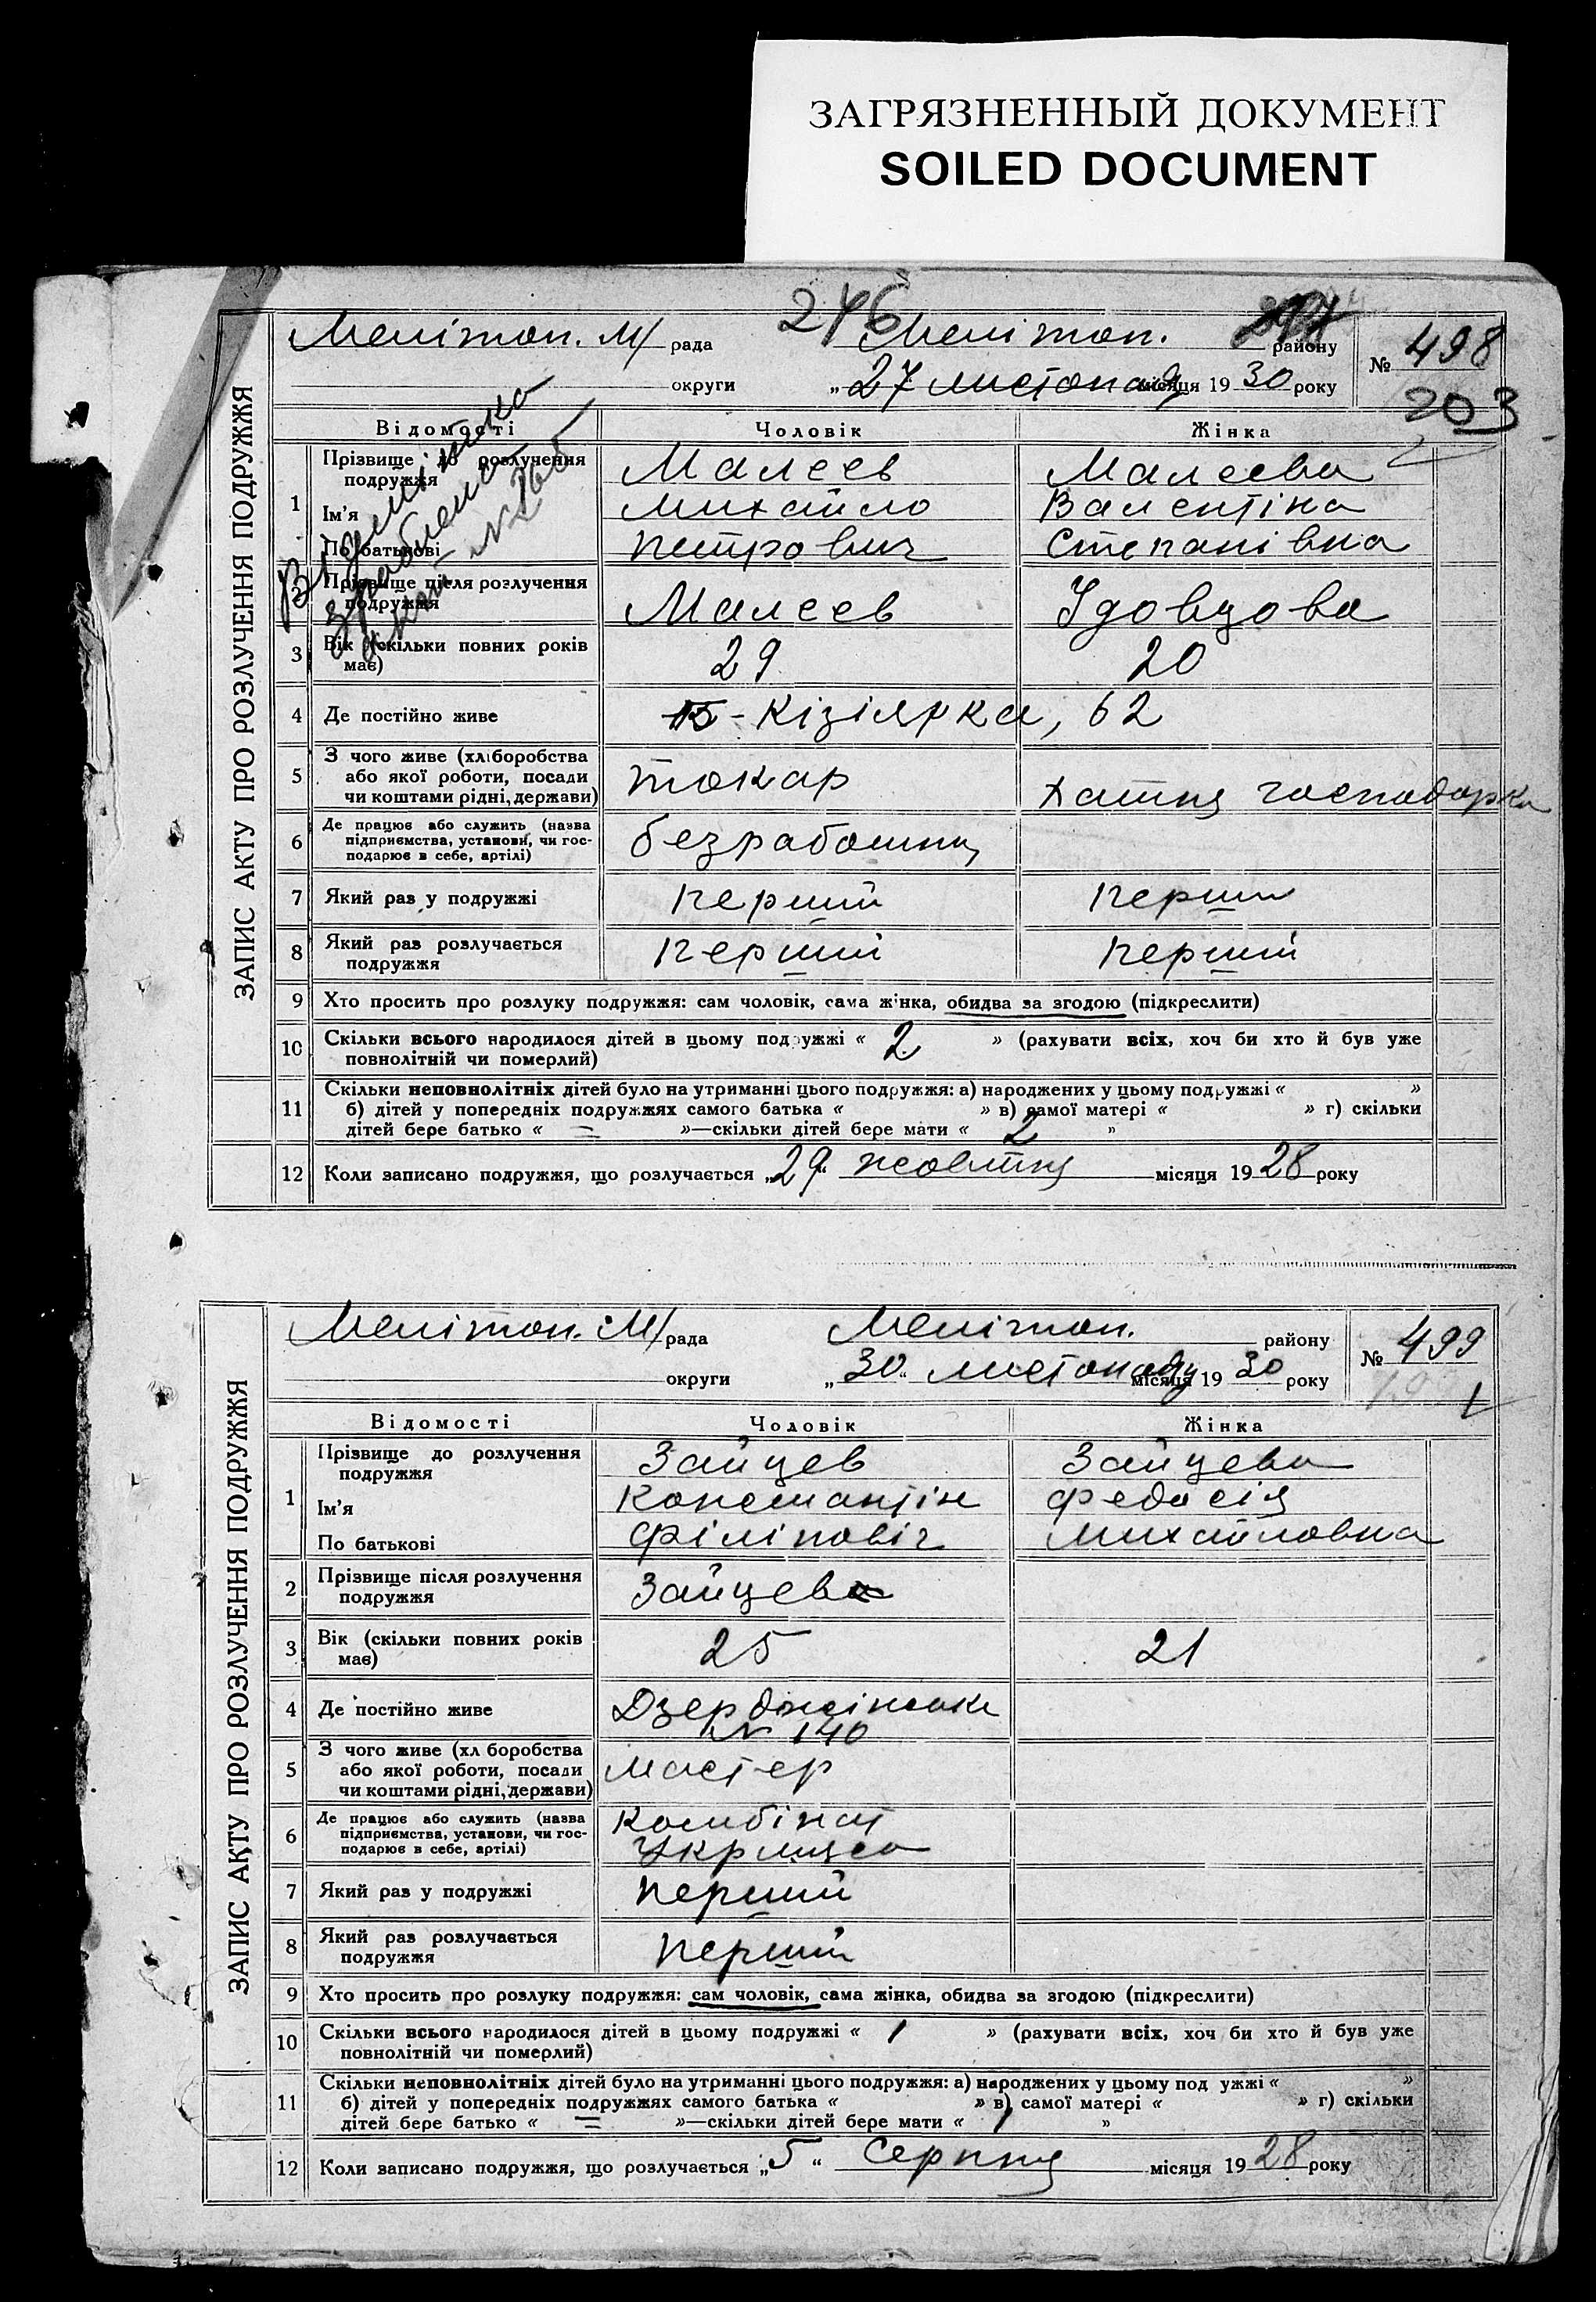 ЗАГРЯЗНЕННЫЙ ДОКУМЕНТ
SOILED DOCUMENT
246
Мелітоп. М/ рада Мелітоп. району № 498
округи „27 листопаду місяця 1930 року
203
Відомості Чоловік Жінка
Відмітка
зроблена
№ 265
ЗАПИС АКТУ ПРО РОЗЛУЧЕННЯ ПОДРУЖЖЯ
1 Прізвище до розлучення подружжя Малеєв Малеева
Ім'я Михайло Валентіна
По батькові Петрович Степанівна
2 Прізвище після розлучення подружжя Малеєв Удовцова
3 Вік (скільки повних років має) 29 20
4 Де постійно живе Кізіярка, 62
5 З чого живе (хліборобства
або якої роботи, посади
чи коштами рідні, держави) токар хатня господарка
6 Де працює або служить (назва
підприємства, установи, чи гос-
подарює в себе, артілі) безработни
7 Який раз у подружжі перший перший
8 Який раз розлучається
подружжя перший перший
9 Хто просить про розлуку подружжя: сам чоловік, сама жінка, обидва за згодою (підкреслити)
10 Скільки всього народилося дітей в цьому подружжі « 2 » (рахувати всіх, хоч би хто й був уже
повнолітній чи померлий)
11 Скільки неповнолітніх дітей було на утриманні цього подружжя: а) народжених у цьому подружжі « »
б) дітей у попередніх подружжях самого батька « » в) самої матері « » г) скільки
дітей бере батько « = »—скільки дітей бере мати « 2 »
12 Коли записано подружжя, що розлучається „29“ жовтня місяця 1928 року
Мелітоп. М/ рада Мелітоп. району № 499
округи „30“ листопаду місяця 1930 року
Відомості Чоловік Жінка
ЗАПИС АКТУ ПРО РОЗЛУЧЕННЯ ПОДРУЖЖЯ
1 Прізвище до розлучення
подружжя Зайцев Зайцева
Ім'я Константін Федосія
По батькові Філіповіч Михайловна
2 Прізвище після розлучення
подружжя Зайцев
3 Вік (скільки повних років
має) 25 21
4 Де постійно живе Дзержінська
№ 140
5 З чого живе (хліборобства
або якої роботи, посади
чи коштами рідні, держави) мастер
6 Де працює або служить (назва
підприємства, установи, чи гос-
подарює в себе, артілі) Комбінат
Укрмясо
7 Який раз у подружжі перший
8 Який раз розлучається
подружжя перший
9 Хто просить про розлуку подружжя: сам чоловік, сама жінка, обидва за згодою (підкреслити)
10 Скільки всього народилося дітей в цьому подружжі « 1 » (рахувати всіх, хоч би хто й був уже
повнолітній чи померлий)
11 Скільки неповнолітніх дітей було на утриманні цього подружжя: а) народжених у цьому подружжі « »
б) дітей у попередніх подружжях самого батька « » в) самої матері « » г) скільки
дітей бере батько « = »—скільки дітей бере мати « 1 »
12 Коли записано подружжя, що розлучається „5“ Серпня місяця 1928 року